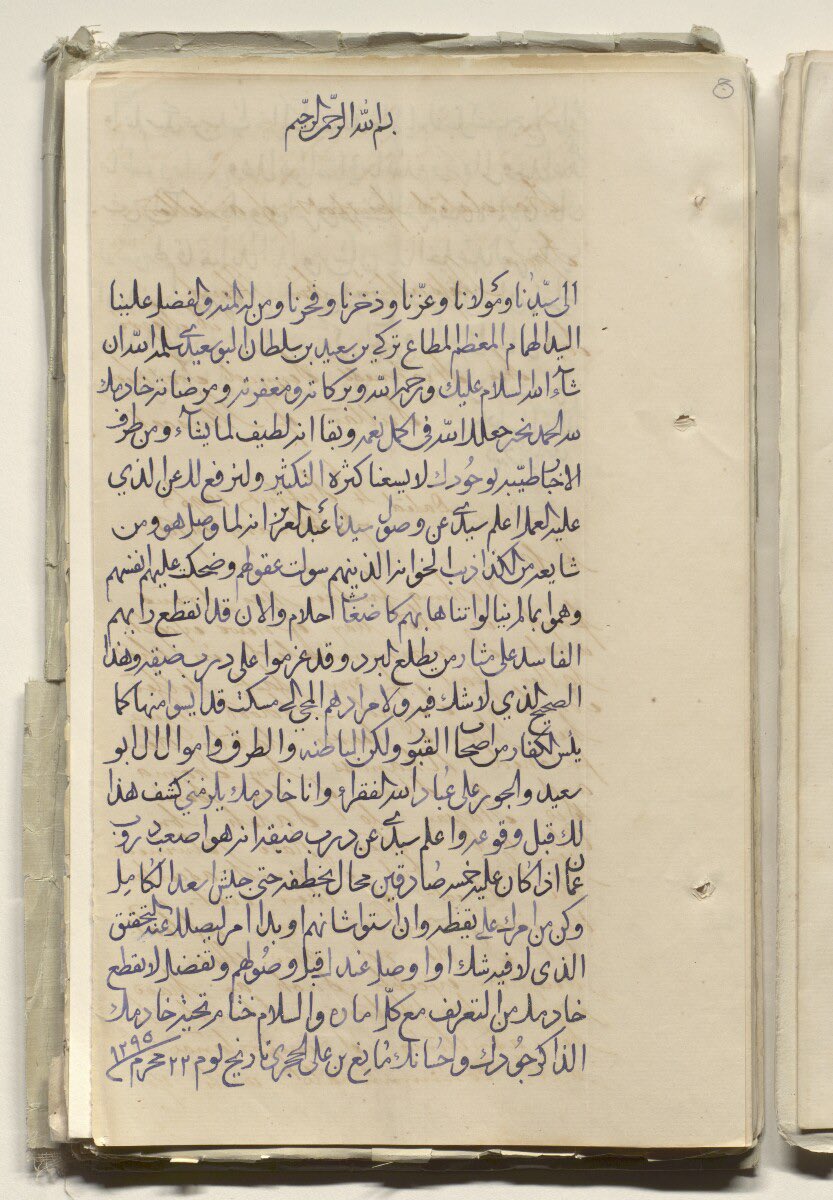 بسم الله الرحمن الرحيم
الى سيّدنا ومولانا وعزّنا وذخرنا وفخرنا ومن له المنه والفضل علينا
السيد الهمام المعظم المطاع تركي بن سعيد بن سلطان البوسعيدي سلمه الله ان
شآء الله السلام عليك ورحمه الله وبركاته ومغفرته ومرضاته خادمك
لله الحمد بخير جعلك الله في اكمل نعمه وبقا انه لطيف لما يشآء ومن طرف
الاخبار طيّبه بوجودك لا يسعنا كثرة التكثير ولنرفع لك عن الذي
عليه العمل اعلم سيدي عن وصول سيدنا عبد العزيز انه لما وصل هو ومن
شايعه من الكذاذيب الخوانه الذينهم سولت عقولهم وضحكت عليهم انفسهم
وهموا بما لم ينالوا تناها بهم كاضغاث احلام والان قد انقطع رايهم
الفاسد على من يطلع البرد وقد عزموا على درب ضيقه وهذا
الصحيح الذي لا شك فيه ولا مرادهم المجي الى مسكت قد ايسوا منها كما
يئس الكفار من اصحاب القبور ولكن الباطنه والطرق واموال ال ابو
سعيد والجور على عباد الله الفقراء وانا خادمك يلزمني كشف هذا
لك قبل وقوعه واعلم سيدي عن درب ضيقه انه هو اصعب دروب
عمان اذا كان عليه خمسه صادقين محال يخطفه حتى جيش اسعد الكامل
وكن من امرك على يقظه وان استوا شانهم او بدا امر ليصلك عند التحقيق
الذي لا فيه شك او اوصل عندك قبل وصولهم وتفضل لا تقطع
خادمك من التعريف مع كل اماره والسلام ختام تحيّة خادمك
الذاكر جودك واحسانك مانع بن علي الحجري تاريخ يوم ٢٢ محرم ١٢٩٥